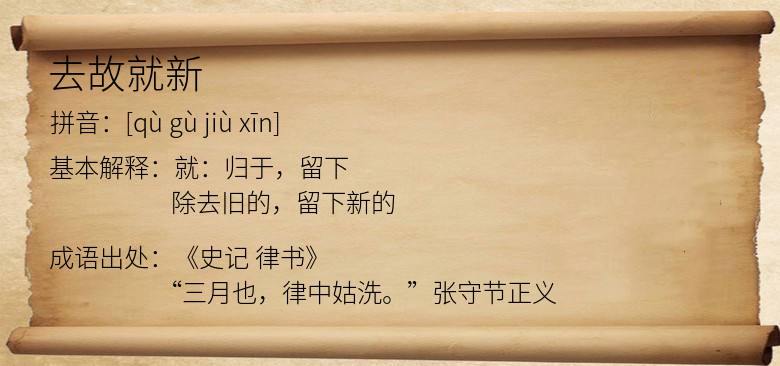 去故就新
拼音：[qù gù jiù xīn]
基本解释：就：归于，留下
除去旧的，留下新的
成语出处：《史记 律书》
“三月也，律中姑洗。”张守节正义